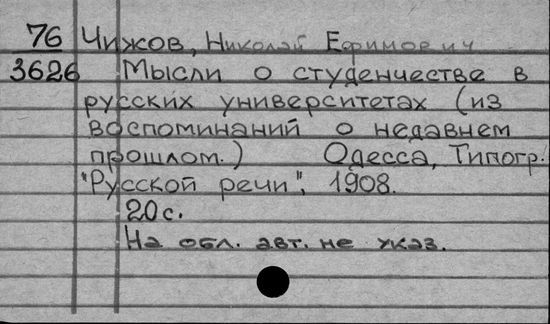 76 Чижов, Николай Ефимович
3626 Мысли о студенчестве в
русских университетах (из
воспоминаний о недавнем
прошлом.) Одесса, Типогр.
"Русской речи", 1908.
20 с.
На обл. авт. не указ.